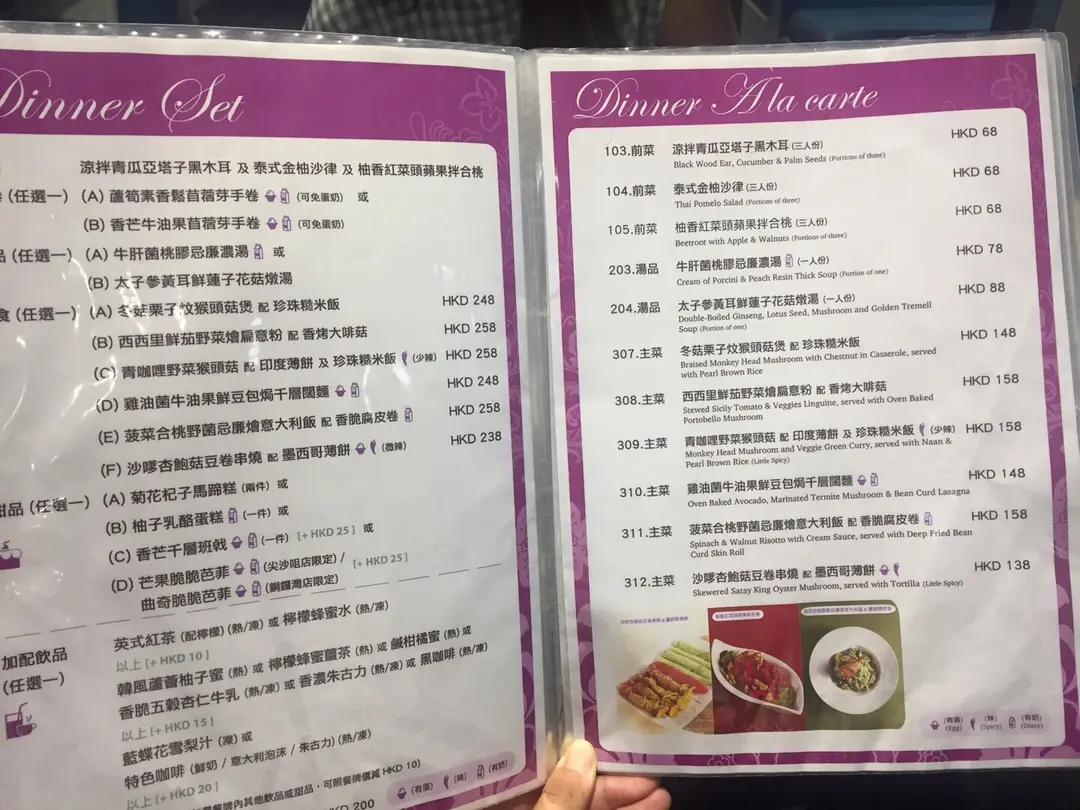 Dinner Set
涼拌青瓜亞塔子黑木耳 及 泰式金柚沙律 及 柚香紅菜頭蘋果拌合桃
(任選一) (A) 蘆筍素香鬆苜蓿芽手卷 (可免蛋奶) 或
(B) 香芒牛油果苜蓿芽手卷 (可免蛋奶)
品 (任選一) (A) 牛肝菌桃膠忌廉濃湯 或
(B) 太子參黃耳鮮蓮子花菇燉湯
食 (任選一) (A) 冬菇栗子炆猴頭菇煲 配 珍珠糙米飯 HKD 248
(B) 西西里鮮茄野菜燴扁意粉 配 香烤大啡菇 HKD 258
(C) 青咖哩野菜猴頭菇 配 印度薄餅 及 珍珠糙米飯 (少辣) HKD 258
(D) 雞油菌牛油果鮮豆包焗千層闊麵 HKD 248
(E) 菠菜合桃野菌忌廉燴意大利飯 配 香脆腐皮卷 HKD 258
(F) 沙嗲杏鮑菇豆卷串燒 配 墨西哥薄餅 (微辣) HKD 238
甜品 (任選一) (A) 菊花杞子馬蹄糕 (兩件) 或
(B) 柚子乳酪蛋糕 (一件) 或
(C) 香芒千層班戟 (一件) [+ HKD 25 ] 或
(D) 芒果脆脆芭菲 (尖沙咀店限定) / [+ HKD 25 ]
曲奇脆脆芭菲 (銅鑼灣店限定)
加配飲品
(任選一)
英式紅茶 (配檸檬) (熱/凍) 或 檸檬蜂蜜水 (熱/凍)
以上 [+ HKD 10 ]
韓風蘆薈柚子蜜 (熱) 或 檸檬蜂蜜薑茶 (熱) 或 鹹柑橘蜜 (熱) 或
香脆五穀杏仁牛乳 (熱/凍) 或 香濃朱古力 (熱/凍) 或 黑咖啡 (熱/凍)
以上 [+ HKD 15 ]
藍蝶花雪梨汁 (凍) 或
特色咖啡 (鮮奶 / 意大利泡沫 / 朱古力) (熱/凍)
以上 [+ HKD 20 ]
餐牌內其他飲品或甜品，可照餐牌價減 HKD 10)
HKD 200
(有蛋) (辣) (有奶)
Dinner A la carte
103.前菜 涼拌青瓜亞塔子黑木耳 (三人份) HKD 68
Black Wood Ear, Cucumber & Palm Seeds (Portions of three)
104.前菜 泰式金柚沙律 (三人份) HKD 68
Thai Pomelo Salad (Portions of three)
105.前菜 柚香紅菜頭蘋果拌合桃 (三人份) HKD 68
Beetroot with Apple & Walnuts (Portions of three)
203.湯品 牛肝菌桃膠忌廉濃湯 (一人份) HKD 78
Cream of Porcini & Peach Resin Thick Soup (Portion of one)
204.湯品 太子參黃耳鮮蓮子花菇燉湯 (一人份) HKD 88
Double-Boiled Ginseng, Lotus Seed, Mushroom and Golden Tremell
Soup (Portion of one)
307.主菜 冬菇栗子炆猴頭菇煲 配 珍珠糙米飯 HKD 148
Braised Monkey Head Mushroom with Chestnut in Casserole, served
with Pearl Brown Rice
308.主菜 西西里鮮茄野菜燴扁意粉 配 香烤大啡菇 HKD 158
Stewed Sicily Tomato & Veggies Linguine, served with Oven Baked
Portobello Mushroom
309.主菜 青咖哩野菜猴頭菇 配 印度薄餅 及 珍珠糙米飯 (少辣) HKD 158
Monkey Head Mushroom and Veggie Green Curry, served with Naan &
Pearl Brown Rice (Little Spicy)
310.主菜 雞油菌牛油果鮮豆包焗千層闊麵 HKD 148
Oven Baked Avocado, Marinated Termite Mushroom & Bean Curd Lasagna
311.主菜 菠菜合桃野菌忌廉燴意大利飯 配 香脆腐皮卷 HKD 158
Spinach & Walnut Risotto with Cream Sauce, served with Deep Fried Bean
Curd Skin Roll
312.主菜 沙嗲杏鮑菇豆卷串燒 配 墨西哥薄餅 HKD 138
Skewered Satay King Oyster Mushroom, served with Tortilla (Little Spicy)
(有蛋) (辣) (有奶)
(Egg) (Spicy) (Diary)